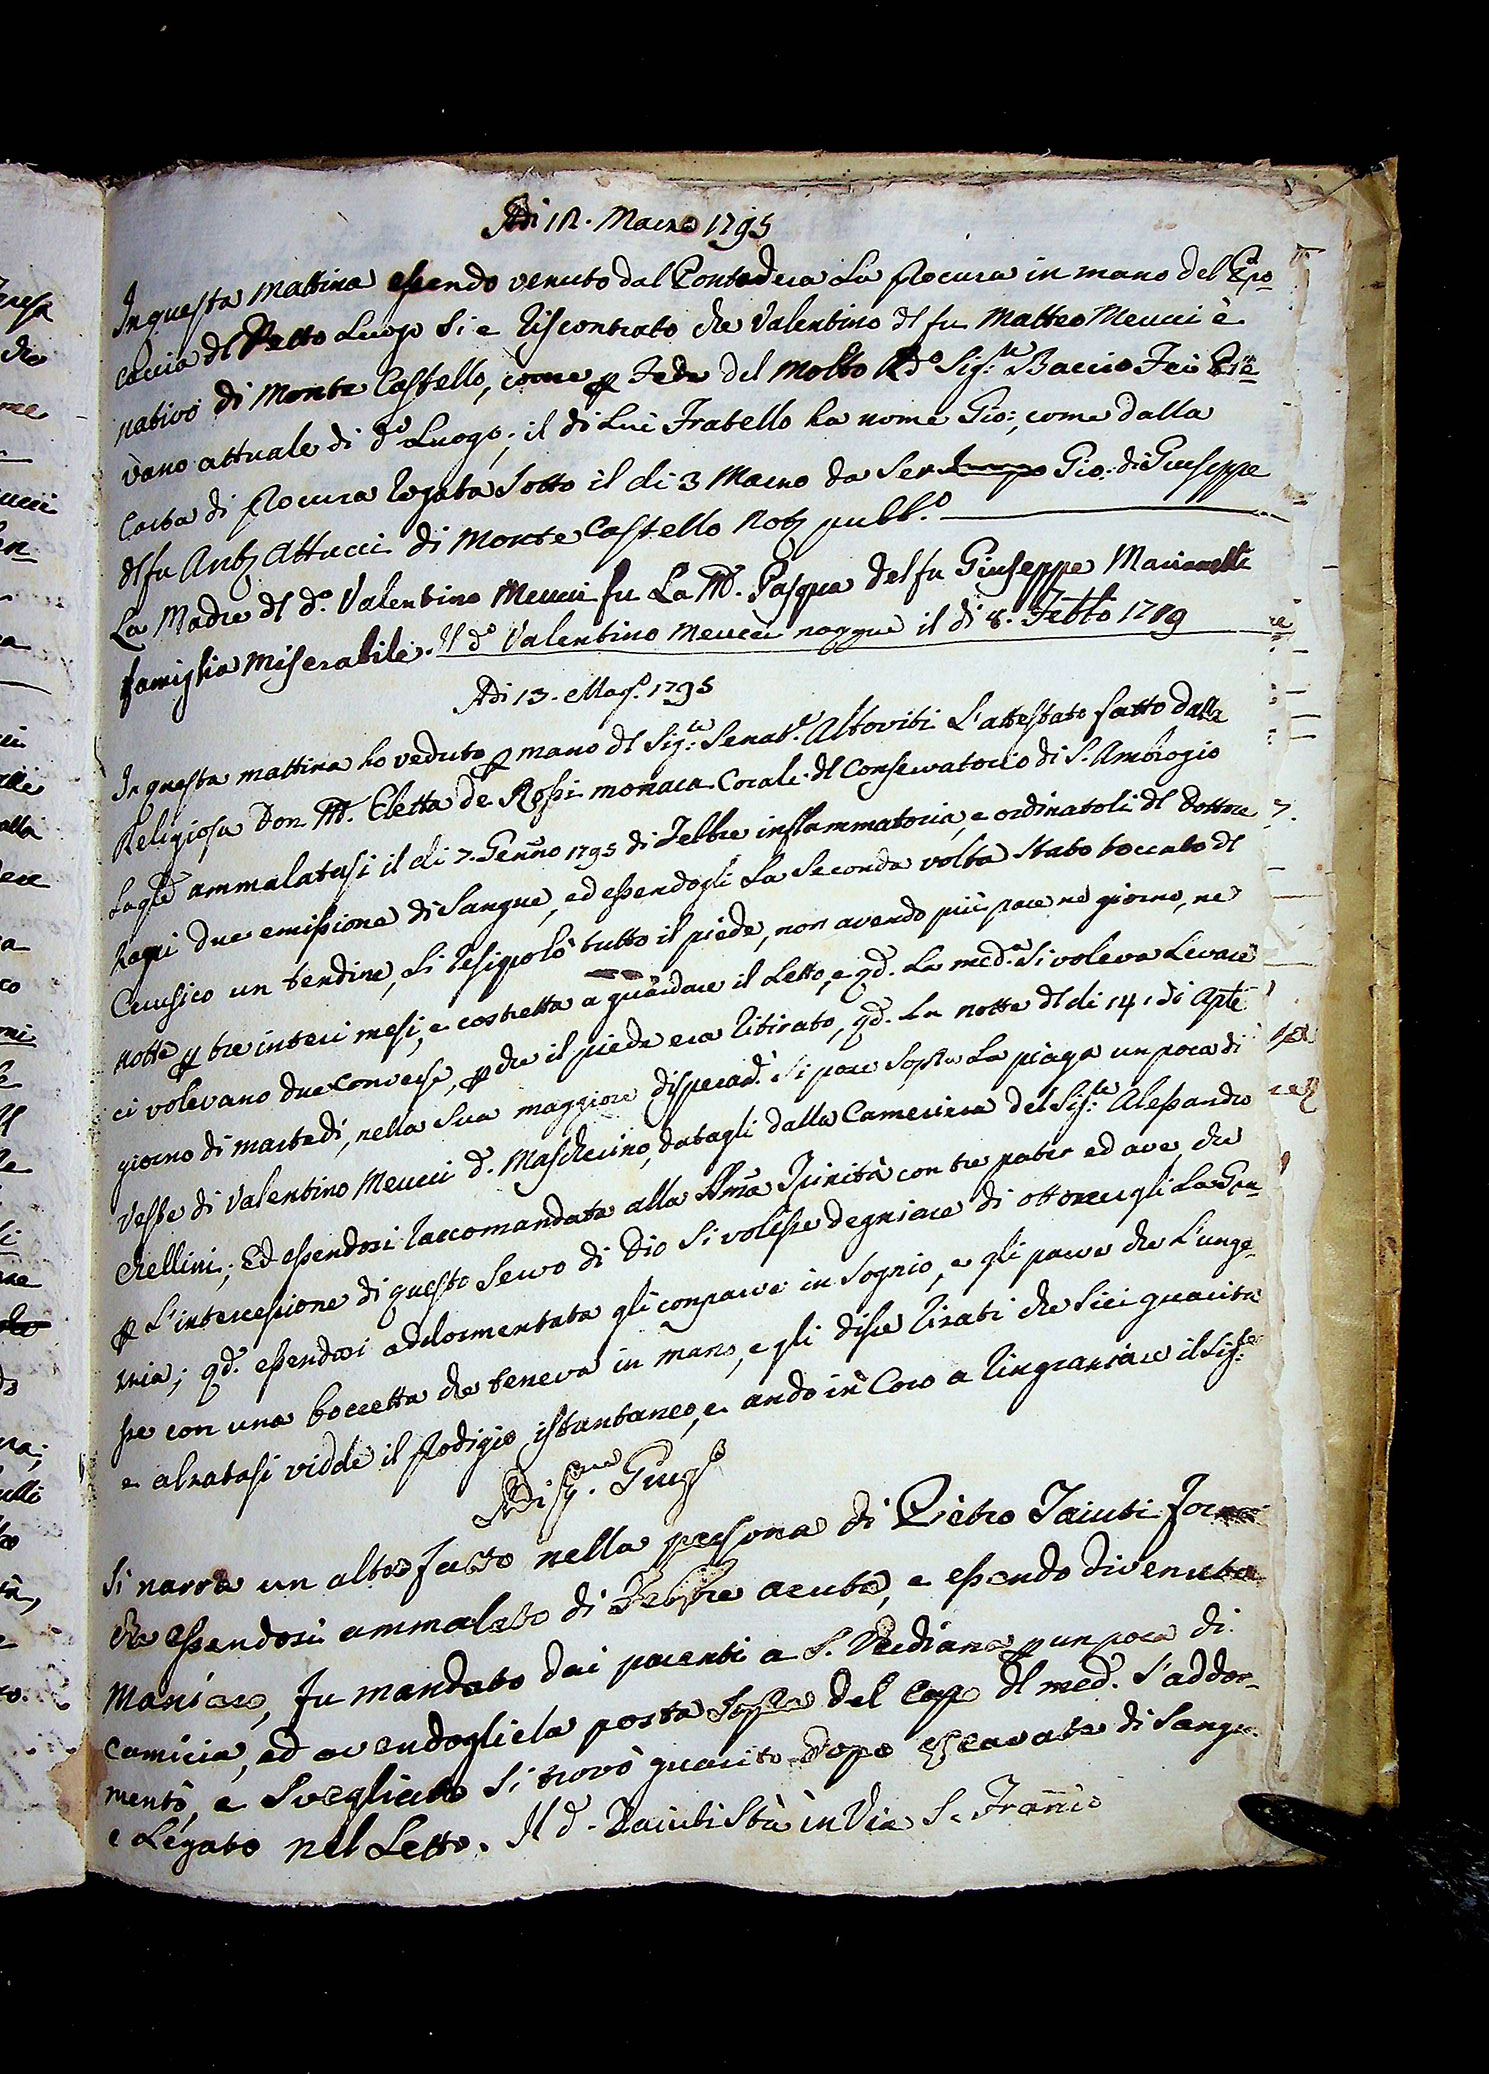 Adi 12. Marzo 1795
In questa mattina essendo venuto dal Pontedera La Procura in mano del Pro
caccia dl Detto Luogo Si e riscontrato che Valentino dl fu Matteo Meucci è
nativo di Monte Castello, come p Fede del Molto Rdo Sig:re Baccio Fei Pie
vano attuale di do Luogo; il di Lui Fratello ha nome Gio:, come dalla
Carta di Procura rogata Sotto il di 3 Marzo da Ser Gio: di Giuseppe
dl fu Anto Attucci di Monte Castello Noto pubb.o
La Madre dl do. Valentino Meucci fu La M. Pasqua del fu Giuseppe Marianelli
famiglia Miserabile. Il do Valentino Meucci nacque il di 8. Febbo 1719
Adi 13. Mago. 1795
In questa mattina ho veduto p mano dl Sig:re Senat.e Altoviti L'attestato fatto dalla
Religiosa Don M. Eletta de Rossi monaca Corale dl Conservatorio di S. Ambrogio
La qle ammalatasi il di 7. Genno 1795 di Febbre inflammatoria, e ordinatoli dl Dottore
due emissione di Sangue, ed essendogli La Seconda volta stato toccato dl
Cerusico un tendine, Si resipolò tutto il piede, non avendo più pace ne giorno, ne
notte p tre interi mesi, e costretta a guardare il Letto, e qd. La med.a Si voleva Levare
ci volevano due Converse, p che il piede era ritirato, qd. La notte dl di 14. di Aple
giorno di martedi, nella Sua maggiore disperad. Si pose Sopra La piaga un poca di
Veste di Valentino Meucci d. Mascherino, datagli dalla Cameriera del Sig:re Alessandro
Chellini; Ed essendosi raccomandata alla Ssma Trinità con tre pater ed ave, che
p L'intercessione di questo Servo di Dio Si volesse degniare di ottenergli La Gra
zia; qd. essendosi addormentata gli comparve in Sognio, e gli parve che L'unge
sse con una boccetta che teneva in mano, e gli disse rizati che Sici guarita
e alzatasi vidde il Prodigio istantaneo, e andò in Coro a ringraziare il Sig:re
Adi Giugo
Si narra un altro fatto nella persona di Pietro Taiuti
che essendosi ammalato di Febbre acuta, e essendo divenuto
Maniaco, fu mandato dai parenti a S. Verdiana p un poca di
camicia, ed avendogliela posta Sopra del capo dl med. S'addor
mentò, e Svegliato Si trovò guarito dopo cavate di Sangue
e Legato nel Letto. Il d. Taiuti Stà in Via S. Franco